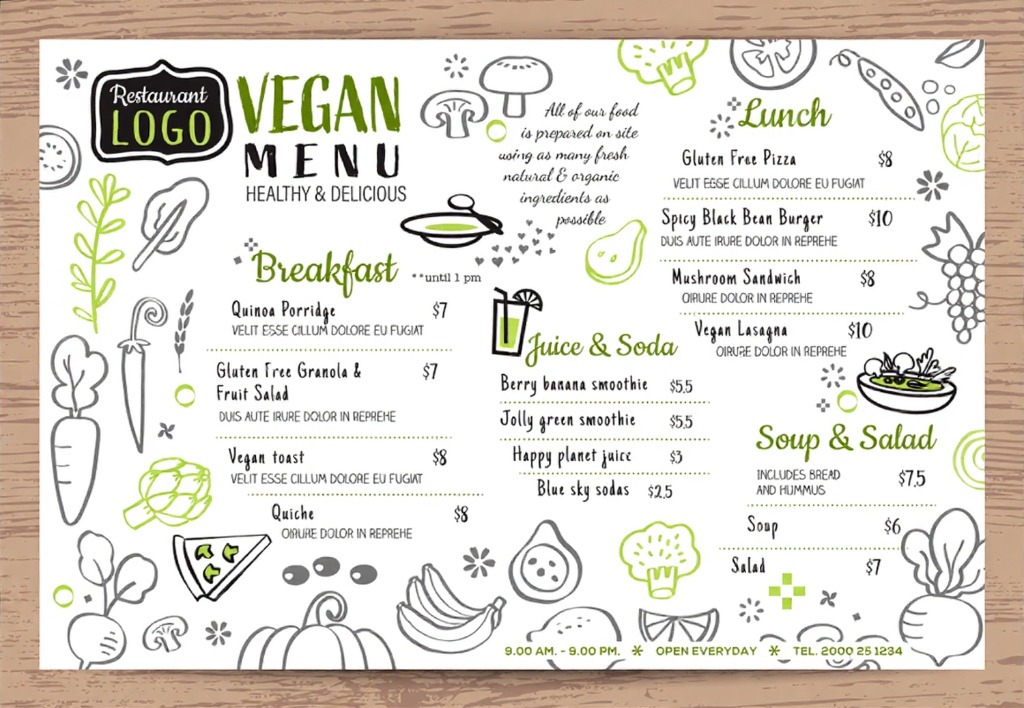 Restaurant
LOGO
VEGAN
MENU
HEALTHY & DELICIOUS
All of our food
is prepared on site
using as many fresh
natural & organic
ingredients as
possible
Breakfast **until 1 pm
Quinoa Porridge $7
VELIT ESSE CILLUM DOLORE EU FUGIAT
Gluten Free Granola & $7
Fruit Salad
DUIS AUTE IRURE DOLOR IN REPREHE
Vegan toast $8
VELIT ESSE CILLUM DOLORE EU FUGIAT
Quiche $8
OIRURE DOLOR IN REPREHE
Juice & Soda
Berry banana smoothie $5.5
Jolly green smoothie $5.5
Happy planet juice $3
Blue sky sodas $2.5
Lunch
Gluten Free Pizza $8
VELIT ESSE CILLUM DOLORE EU FUGIAT
Spicy Black Bean Burger $10
DUIS AUTE IRURE DOLOR IN REPREHE
Mushroom Sandwich $8
OIRURE DOLOR IN REPREHE
Vegan Lasagna $10
OIRURE DOLOR IN REPREHE
Soup & Salad
INCLUDES BREAD $7.5
AND HUMMUS
Soup $6
Salad $7
9.00 AM. - 9.00 PM. * OPEN EVERYDAY * TEL. 2000 25 1234